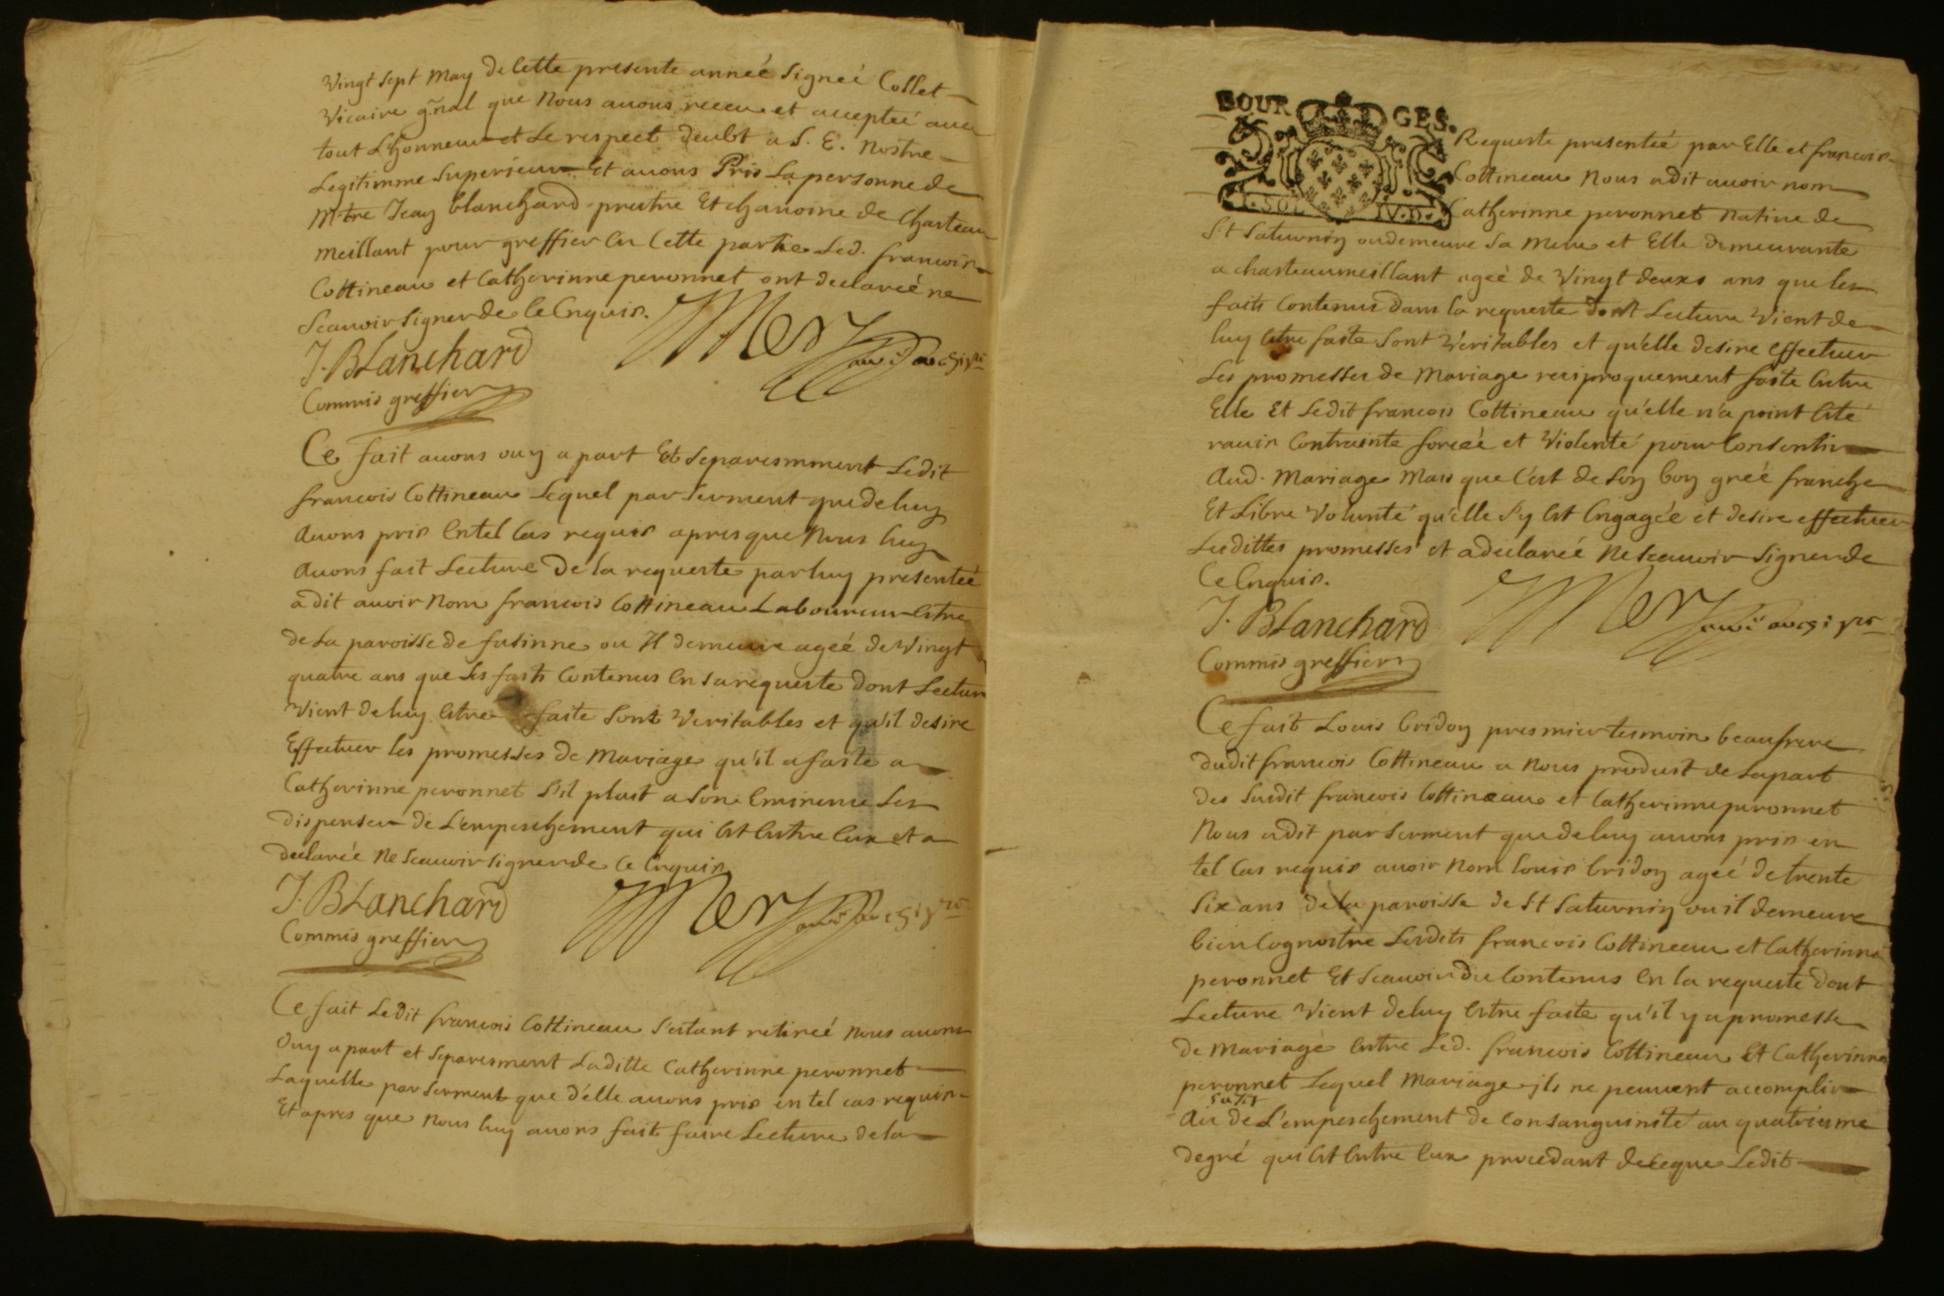 Vingt sept May de cette presente anneé signeé Collet
Vicaire gñal que Nous auons receu et accepteé auec
tout L'honneur et Le respect deubt a S. E. Nostre
Legitimme Superieur Et auons Pris La personne de
Mtre Jean blanchard prestre Et chanoine de Chasteau
meillant pour greffier en Cette partie Led. francois
Cottineau et Catherinne peronnet ont declareé ne
Scauoir signer de ce Enquis.
J. BLanchard
Commis greffier
Ce fait auons ouy a part Et Separemment Ledit
francois Cottineau Lequel par Serment que de luy
Auons pris En tel Cas requis apres que Nous luy
Auons fait Lecture De la requeste par luy presenteé
a dit auoir Nom francois Cottineau Laboureur Estre
de La paroisse de fusinne ou Il demeure ageé de Vingt
quatre ans que Les faits Contenus En sa requeste dont Lecture
Vient de luy Estre faite Sont Veritables et qu'il desire
Effectuer les promesses de Mariage qu'il a faite a
Catherinne peronnet S'il plait a Son Eminence Les
dispenser de L'empeschement qui Est Entre Eux et a
declareé Ne Scauoir signer de Ce Enquis
J. BLanchard
Commis greffier
Ce fait Ledit francois Cottineau S'estant retireé Nous auons
Ouy a part et Separement Laditte Catherinne peronnet
Laquelle par Serment que d'elle auons pris en tel cas requis
Et apres que Nous luy auons fait faire Lecture de la
BOURGES.
I. SOL IV. D.
Requeste presenteé par Elle et francois
Cottineau Nous a dit auoir nom
Catherinne peronnet Natiue de
St Saturnin ou demeure Sa Mere et Elle demeurante
a chasteaumeillant ageé de Vingt deuxs ans que les
faits Contenus dans la requeste dont Lecture Vient de
luy Estre faite Sont Veritables et qu'elle desire effectuer
Les promesses de Mariage reciproquement faite Entre
Elle Et Ledit francois Cottineau qu'elle n'a point Eté
rauir Contrainte forceé et Violenté pour Consentir
Aud. Mariage Mais que C'est de Son bon greé franche
Et Libre Volunté qu'elle S'y Est Engageé et desire effectuer
Lesdittes promesses et a declareé Ne Scauoir Signer de
Ce Enquis.
J. BLanchard
Commis greffier
Ce fait Louis bridon presmier tesmoin beaufrere
dudit francois Cottineau a Nous produit de La part
des Susdit francois Cottineau et Catherinne peronnet
Nous a dit par Serment que de luy auons pris en
tel Cas requis auoir Nom Louis bridon ageé de trente
Six ans de la paroisse de St Saturnin ou il demeure
bien Cognoitre Lesdits francois Cottineau et Catherinne
peronnet Et Scauoir du Contenus En la requeste dont
Lecture Vient de luy Estre faite qu'il y a promesse
De Mariage Entre Led. francois Cottineau Et Catherinne
peronnet Lequel Mariage ils ne peuuent accomplir
de L'empeschement de Consanguinité au quatriesme
degré qui Est Entre Eux procedant de ce que Ledit